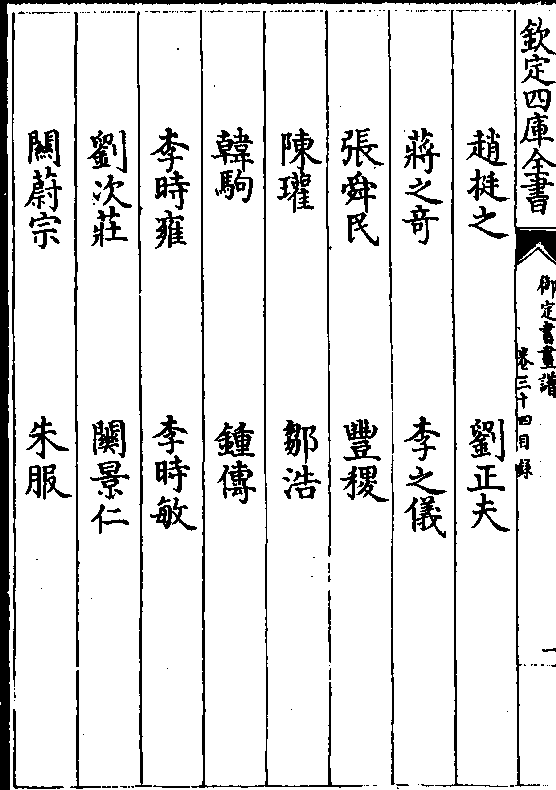 欽定四庫全書
御定書畫譜
卷三十四目錄
一
趙挺之 劉正夫
蔣之奇 李之儀
張舜民 豐稷
陳瓘 鄒浩
韓駒 鍾傳
李時雍 李時敏
劉次莊 關景仁
關蔚宗 朱服